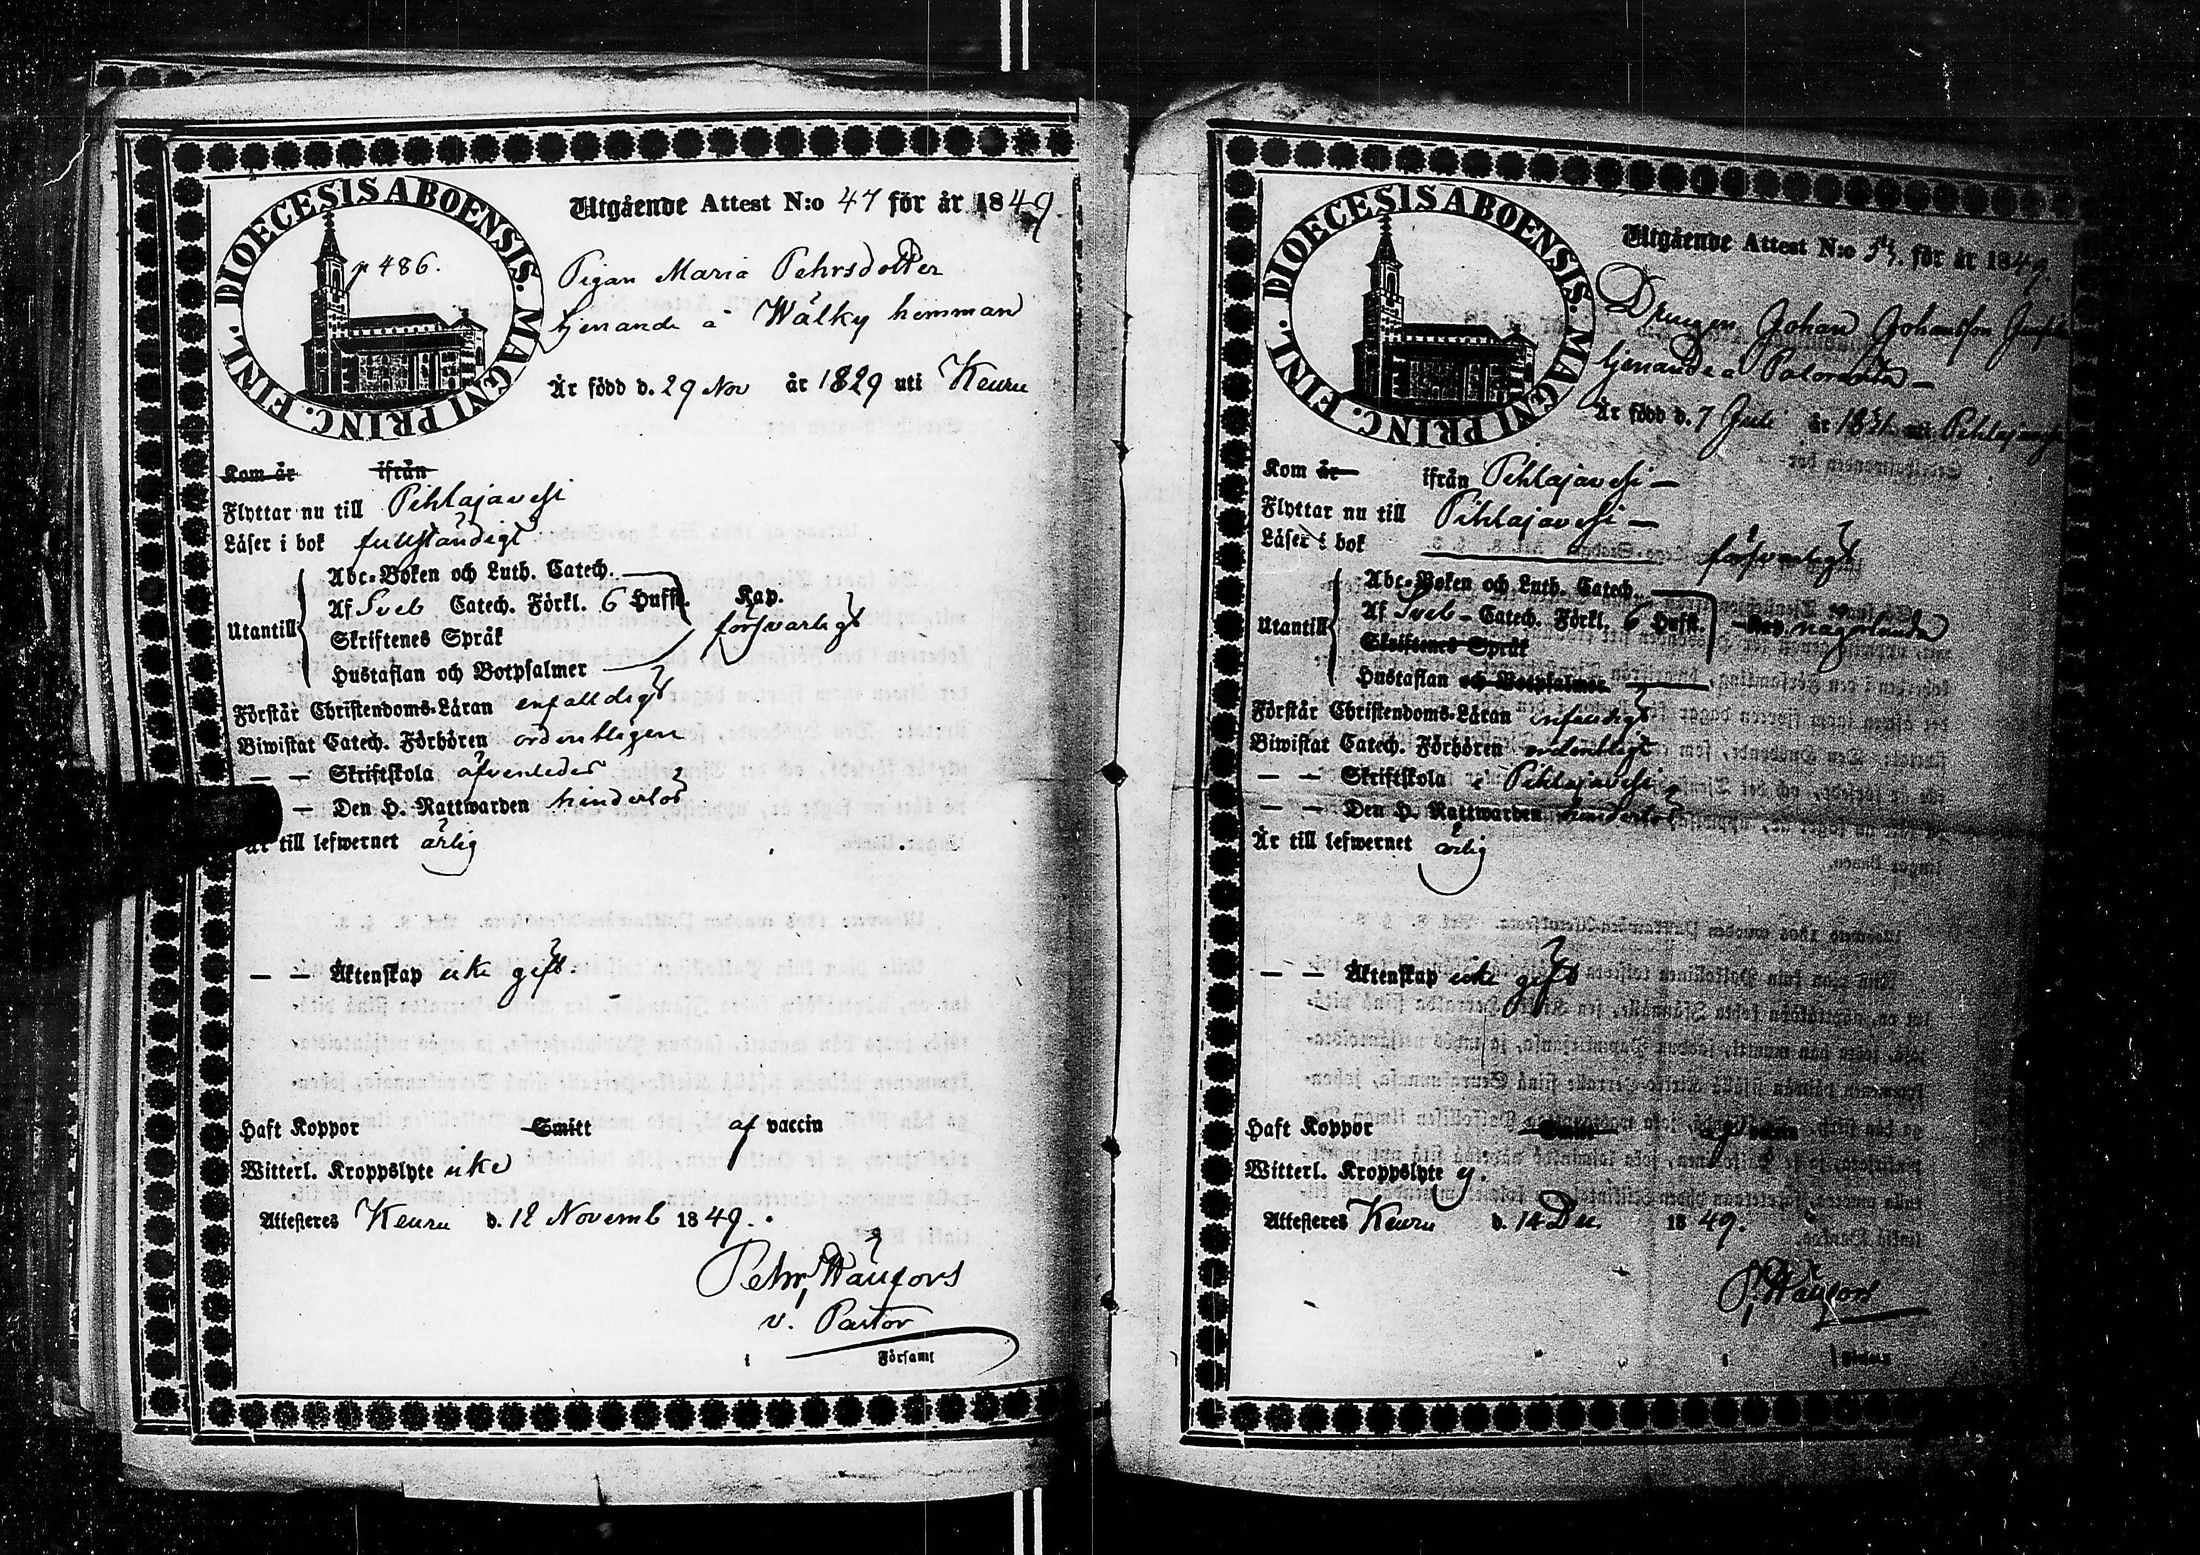 DIOECESIS ABOENSIS. MAGNI PRINC. FINL.
p 486.
Utgående Attest N:o 47 för år 1849.
Pigan Maria Pehrsdotter
tjenande å Wälky hemman
Är född d. 29 Nov år 1829 uti Keuru
Kom år ifrån
Flyttar nu till Pihlajavesi
Läser i bok fullständigt
Utantill
Abc-Boken och Luth. Catech.
Af Sveb Catech. Förkl. 6 Hufst. Kap.
Skriftenes Språk försvarligt
Hustaflan och Botpsalmer
Förstår Christendoms-Läran enfalldigt
Biwistat Catech. Förhören ordentligen
— — Skriftskola äfvenledes
— Den H. Nattwarden hinderlös
Är till lefwernet ärlig
— — Äktenskap icke gift.
Haft Koppor Smitt af vaccin
Witterl. Kroppslyte icke
Attesteres Keuru d. 12 Novemb 1849.
Pehr Wäufors
v. Pastor
i Församl
DIOECESIS ABOENSIS. MAGNI PRINC. FINL.
Utgående Attest N:o för år 1849.
Drengen Johan Johansson
tjenande å
Är född d. 7 Juli år 1831 uti Pihlajavesi
Kom år ifrån Pihlajavesi —
Flyttar nu till Pihlajavesi —
Läser i bok försvarligt
Utantill
Abc-Boken och Luth. Catech.
Af Sveb – Catech. Förkl. 6 Hufst. Kap. någorlunda
Skriftenes Språk
Hustaflan och Botpsalmer
Förstår Christendoms-Läran enfaldigt
Biwistat Catech. Förhören ordentligt
— — Skriftskola i Pihlajavesi
— — Den H. Nattwarden hinderlös
Är till lefwernet ärlig
— — Äktenskap icke gift
Haft Koppor Smitt af vaccin
Witterl. Kroppslyte ej.
Attesteres Keuru d. 14 Dec. 1849.
P. Wäufors
i